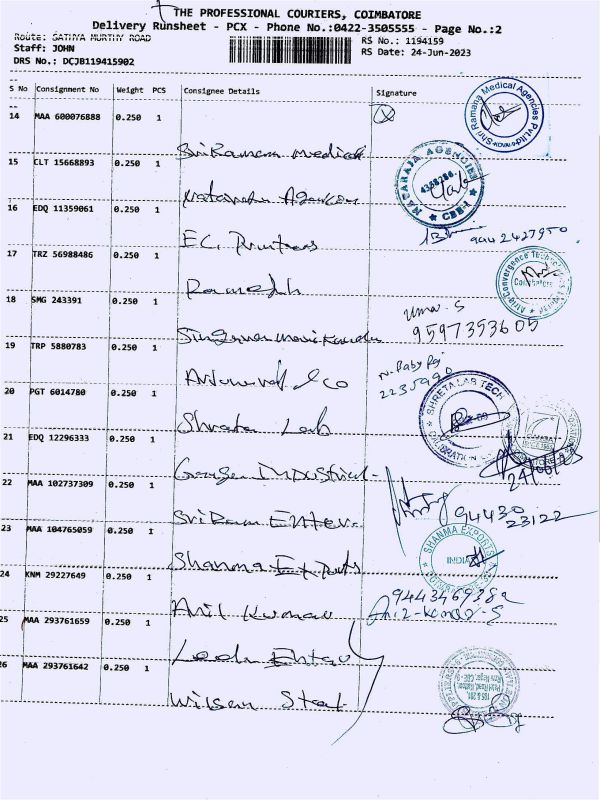 THE PROFESSIONAL COURIERS, COIMBATORE
Delivery Runsheet - PCX - Phone No.:0422-3505555 - Page No.:2
Route: SATHYA MURTHY ROAD
RS No.: 1194159
Staff: JOHN
RS Date: 24-Jun-2023
DRS No.: DCJB119415902
S No Consignment No Weight PCS Consignee Details Signature
14 MAA 600076888 0.250 1
Shri Ramana Medical Agencies Pvt.Ltd
Sri Ramana Medical
15 CLT 15668893 0.250 1
NATARAJA AGENCIES
4388286
CBE-1
Nataraja Agencies
16 EDQ 11359061 0.250 1
944 2427950
E.C. Printers
17 TRZ 56988486 0.250 1
Atrio-Convergence
Coimbatore
Ramesh
18 SMG 243391 0.250 1
Uma. S
9597353605
19 TRP 5880783 0.250 1
N. Baby Raj
2235990
& Co
20 PGT 6014780 0.250 1
SHRETA LAB TECH
CALIBRATION
Shreta Lab
21 EDQ 12296333 0.250 1
Industrial
22 MAA 102737309 0.250 1
94430
23122
Sri Ram Enter.
23 MAA 104765059 0.250 1
SHANMA EXPORTS
Shanma Exports
24 KNM 29227649 0.250 1
9443469382
Anil Kumar
Anil-Kumar-S
25 MAA 293761659 0.250 1
26 MAA 293761642 0.250 1
Wilson Steel